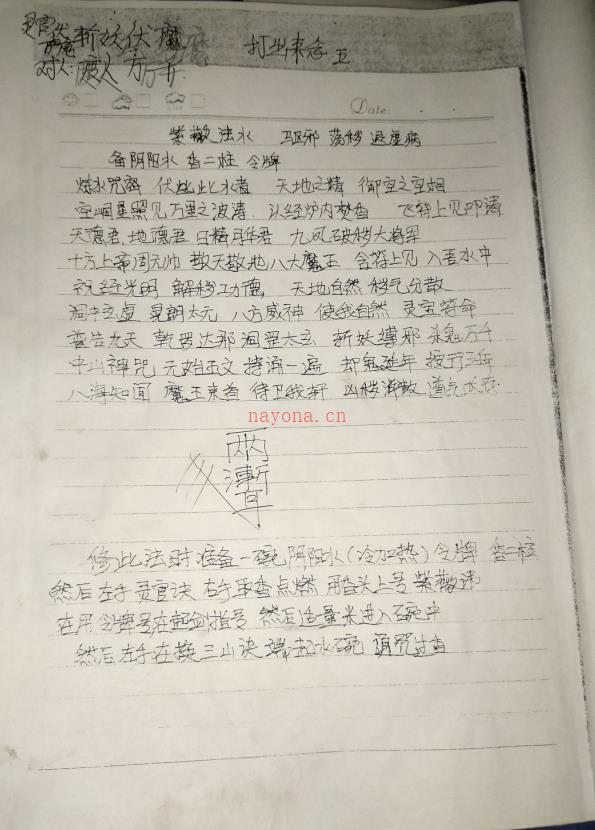 斩妖伏魔
打出来念
对人
Date:
紫微法水 驱邪 荡秽 退虚病
备阴阳水 香二柱 令牌
炼水咒解 伏此此水者 天地之精 御空之空相
空峒星照见万里之波涛 认经炉内焚香 飞符上见叩请
天德君 地德君 日精月华君 九凤破秽大将军
十方上帝周元帅 敕天敕地八大魔王 含符上见 入吾水中
祝经光明 解秽功德 天地自然 秽气分散
洞中玄虚 晃朗太元 八方威神 使我自然 灵宝符命
普告九天 乾罗达那 洞罡太玄 斩妖缚邪 杀鬼万千
中山神咒 元始玉文 持诵一遍 却鬼延年 按行五岳
八海知闻 魔王束首 侍卫我轩 凶秽消散 道气长存
nayona.cn
修此法时 准备一碗阴阳水(冷加热)令牌 香二柱
然后左手灵官诀 右手拿香点燃 用香头上号 紫微讳
在用令牌号在起剑指号 然后适量米进入碗中
然后左手在换三山诀 端起水碗 诵咒过香